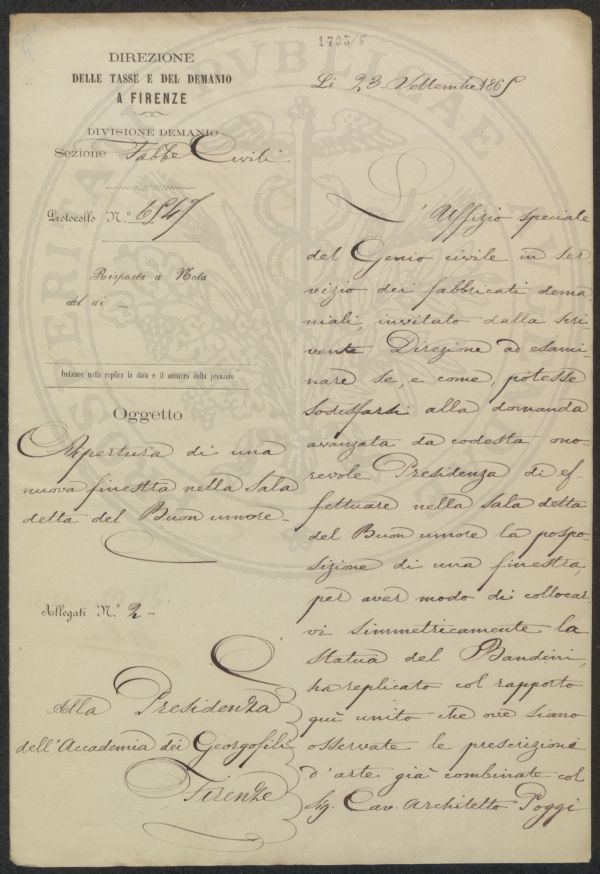 1795/5
DIREZIONE
DELLE TASSE E DEL DEMANIO
A FIRENZE
DIVISIONE DEMANIO
Sezione Fabbe Civili
Protocollo N.º 6547
Risposta a Nota
del dì –
Indicare nella replica la data e il numero della presente
Oggetto
Apertura di una
nuova finestra nella Sala
detta del Buon umore –
Allegati N.º 2 –
Alla Presidenza
dell'Accademia dei Georgofili
Firenze
Li 23 Settembre 1865
L'Uffizio speciale
del Genio civile in ser
vizio dei fabbricati dema
niali, invitato dalla Scri
vente Direzione ad esami
nare se, e come, potesse
sodisfarsi alla domanda
avanzata da codesta ono
revole Presidenza di ef
fettuare nella sala detta
del Buon umore la pospo
sizione di una finestra,
per aver modo di collocar
vi simmetricamente la
statua del Bandini,
ha replicato col rapporto
quì unito che ove siano
osservate le prescrizioni
d'arte già combinate col
Sig. Cav. Architetto Poggi